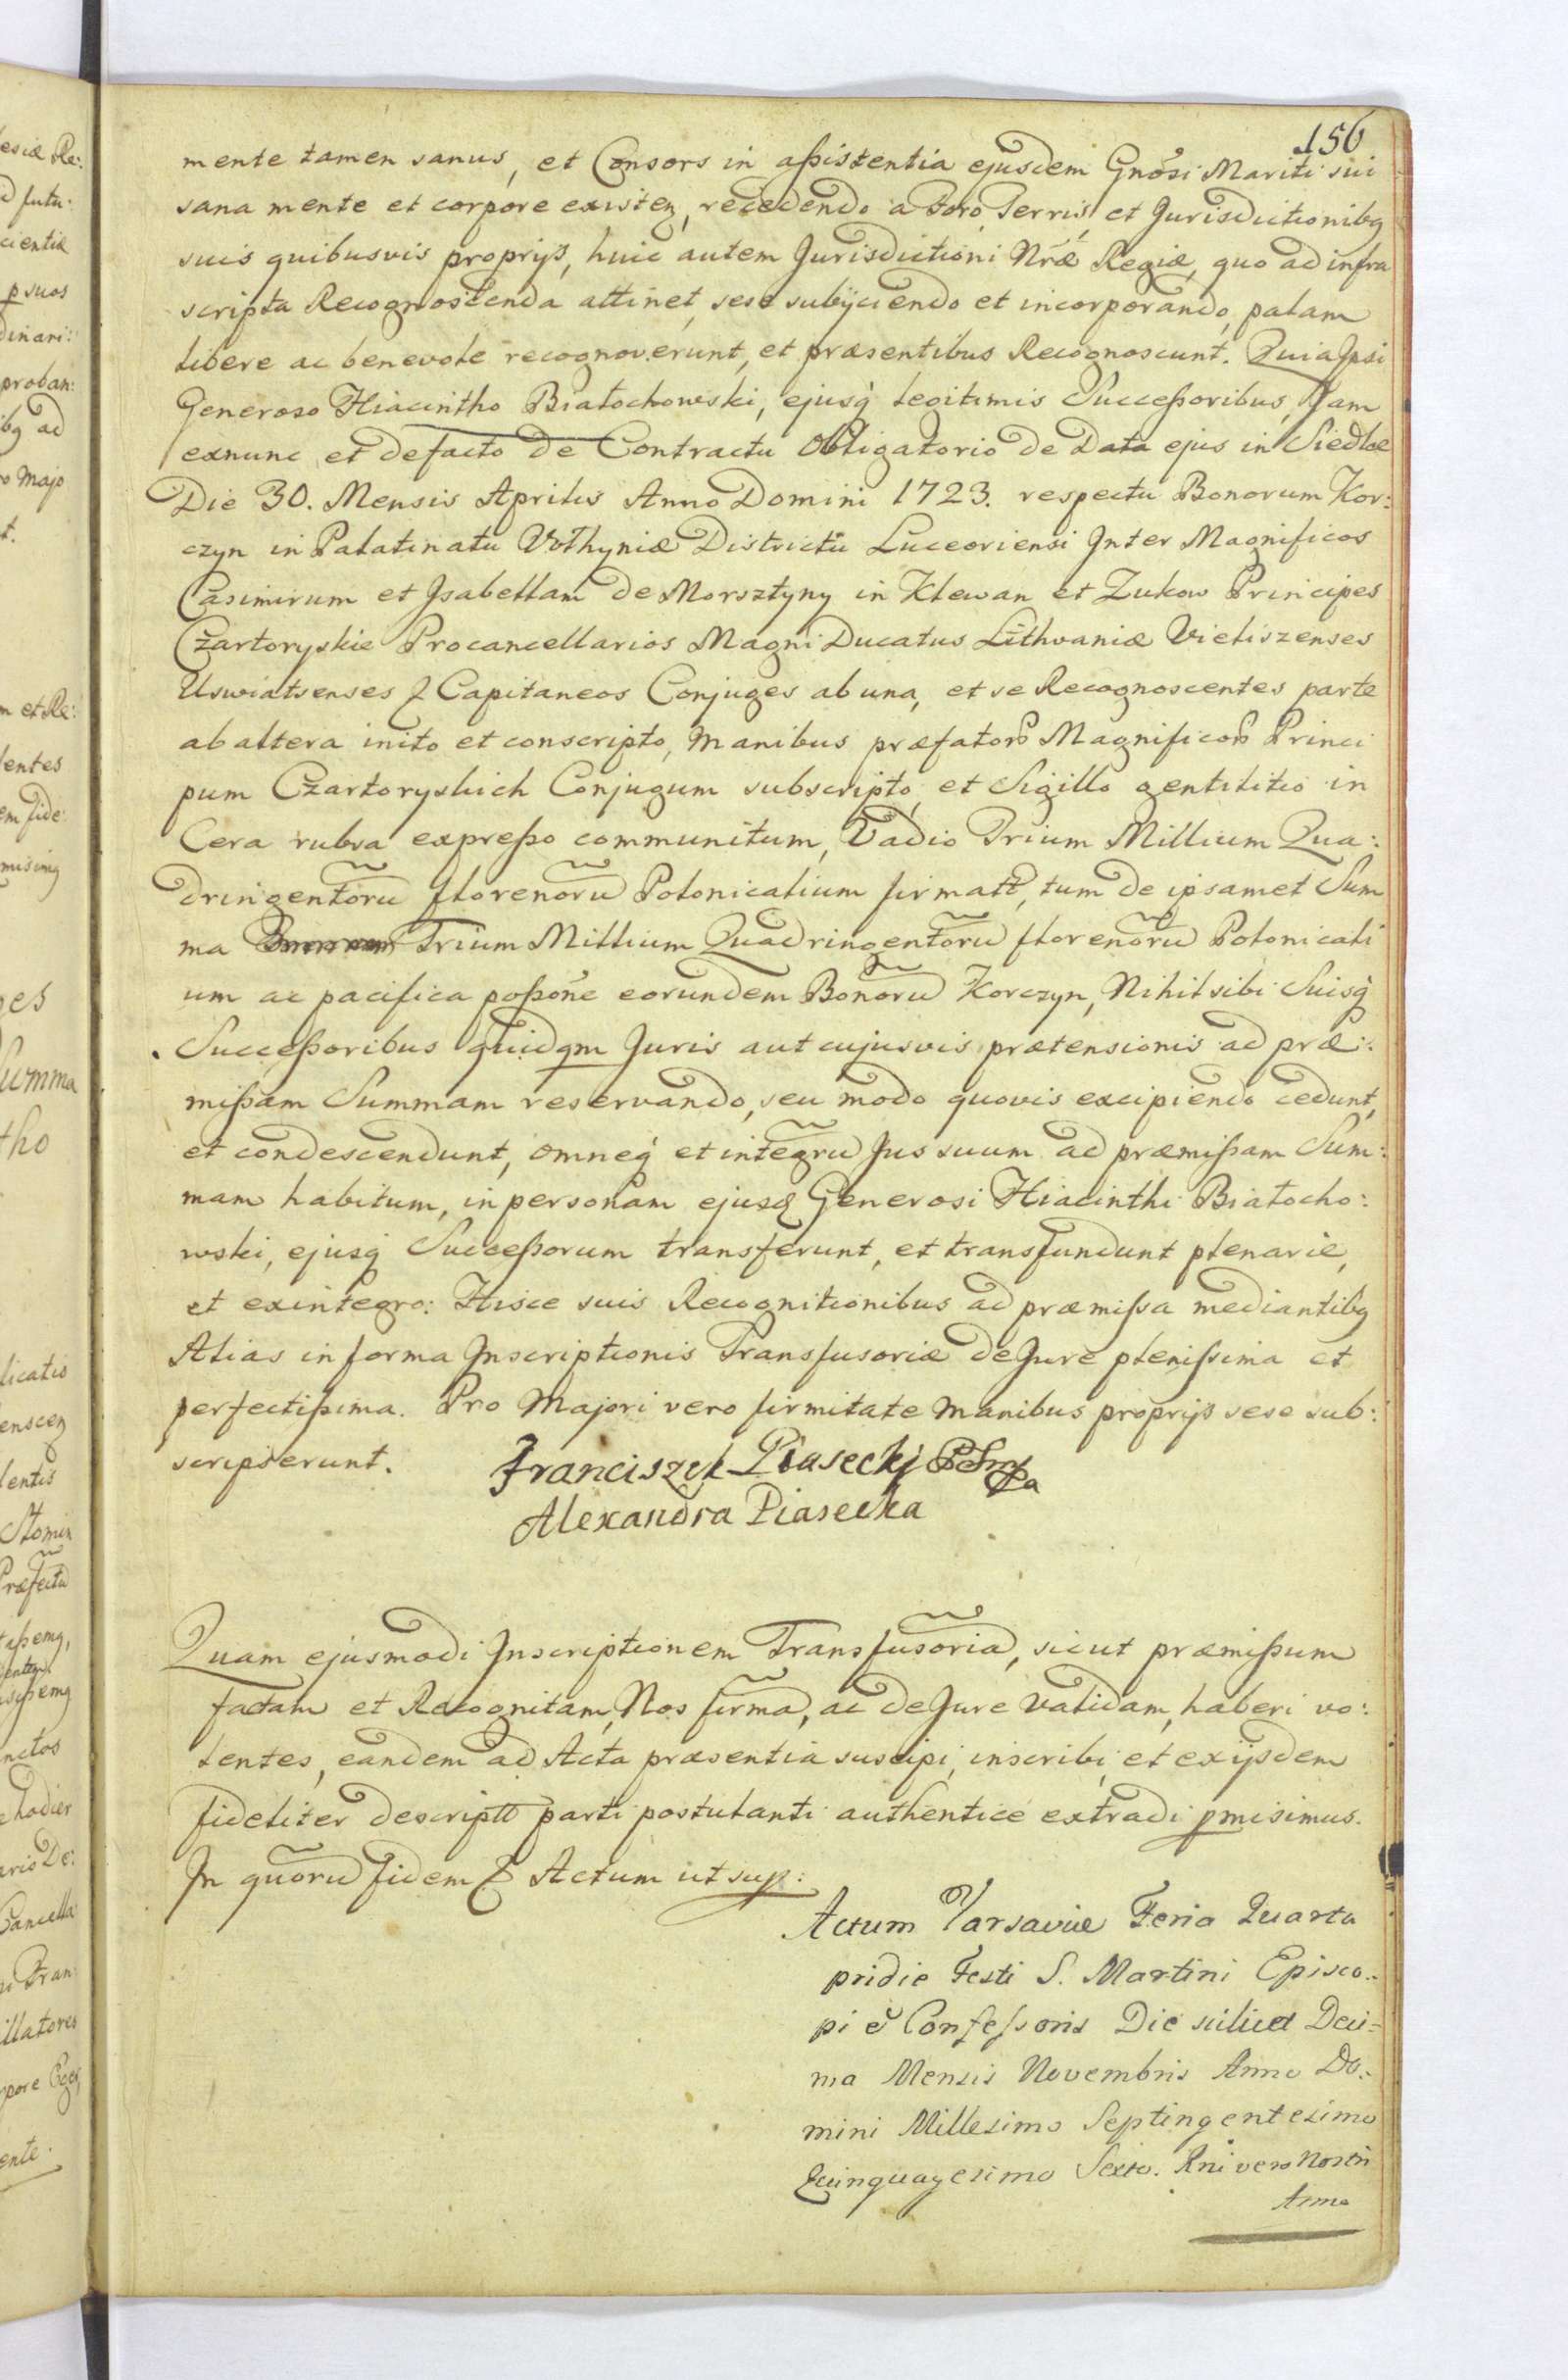 156
mente tamen sanus, et Consors in aßistentia ejusdem Gnõsi Mariti sui
sana mente et corpore existeñ, recedendo a Foro, Terris, et Jurisdictionibq
suis quibusvis proprijs, huic autem Jurisdictioni Nræ Regiæ, quo ad infra
scripta Recognoscenda attinet, sese subijciendo et incorporando, palam
libere ac benevole recognoverunt, et præsentibus Recognoscunt. Quia Ipsi
Generoso Hiacintho Białochowski, ejusq́ legitimis Succeßoribus, Jam
exnunc et defacto de Contractu Obligatorio de Data ejus in Siedlce
Die 30. Mensis Aprilis Anno Domini 1723. respectu Bonorum Kor:
czyn in Palatinatu Volhyniæ Districtu Luceoriensi Inter Magnificos
Casimirum et Isabellam de Morsztyny in Klewan et Zukow Principes
Czartoryskie Procancellarios Magni Ducatus Lithvaniæ Vieliszenses
Uswiatsenses & Capitaneos Conjuges ab una, et se Recognoscentes parte
ab altera inito et conscripto, Manibus præfator Magnificor Princi
pum Czartoryskich Conjugum subscripto, et Sigillo gentilitio in
Cera rubra expreßo communitum, Vadio Trium Millium Qua:
dringentorũ florenorũ Polonicalium firmatt, tum de ipsamet Sum
ma Trium Millium Quadringentorũ florenorũ Polonicali
um ac pacifica poßoñe eorundem Bonorũ Korczyn, Nihil sibi Suisq́
Succeßoribus quidqm Juris aut cujusvis prætensionis ad præ:
mißam Summam reservando, seu modo quovis excipiendo cedunt,
et condescendunt, omneq́ et integrũ Jus suum ad præmißam Sum:
mam habitum, in personam ejusd Generosi Hiacinthi Białocho:
wski, ejusq́ Succeßorum transferunt, et transfundunt plenarie,
et exintegro: Hisce suis Recognitionibus ad præmißa mediantibq
Alias in forma Inscriptionis Transfusoriæ de Jure plenißima et
perfectißima. Pro Majori vero firmitate Manibus proprijs sese sub:
scripserunt. Franciszek Piasecki
Alexandra Piasecka
Quam ejusmodi Inscriptionem Transfusoriã, sicut præmißum
factam et Recognitam, Nos firmã, ac de Jure validam, haberi vo:
lentes, eandem ad Acta præsentia suscipi, inscribi, et exijsdem
fideliter descriptt parti postulanti authentice extradi pmisimus.
In quorũ fidem & Actum ut sup:
Actum Varsaviæ Feria Quarta
pridie Festi S. Martini Episco:
pi & Confeßoris Die scilicet Deci=
ma Mensis Novembris Anno Do:
mini Millesimo Septingentesimo
Quinquagesimo Sexto. Rni vero Nostri
Anno